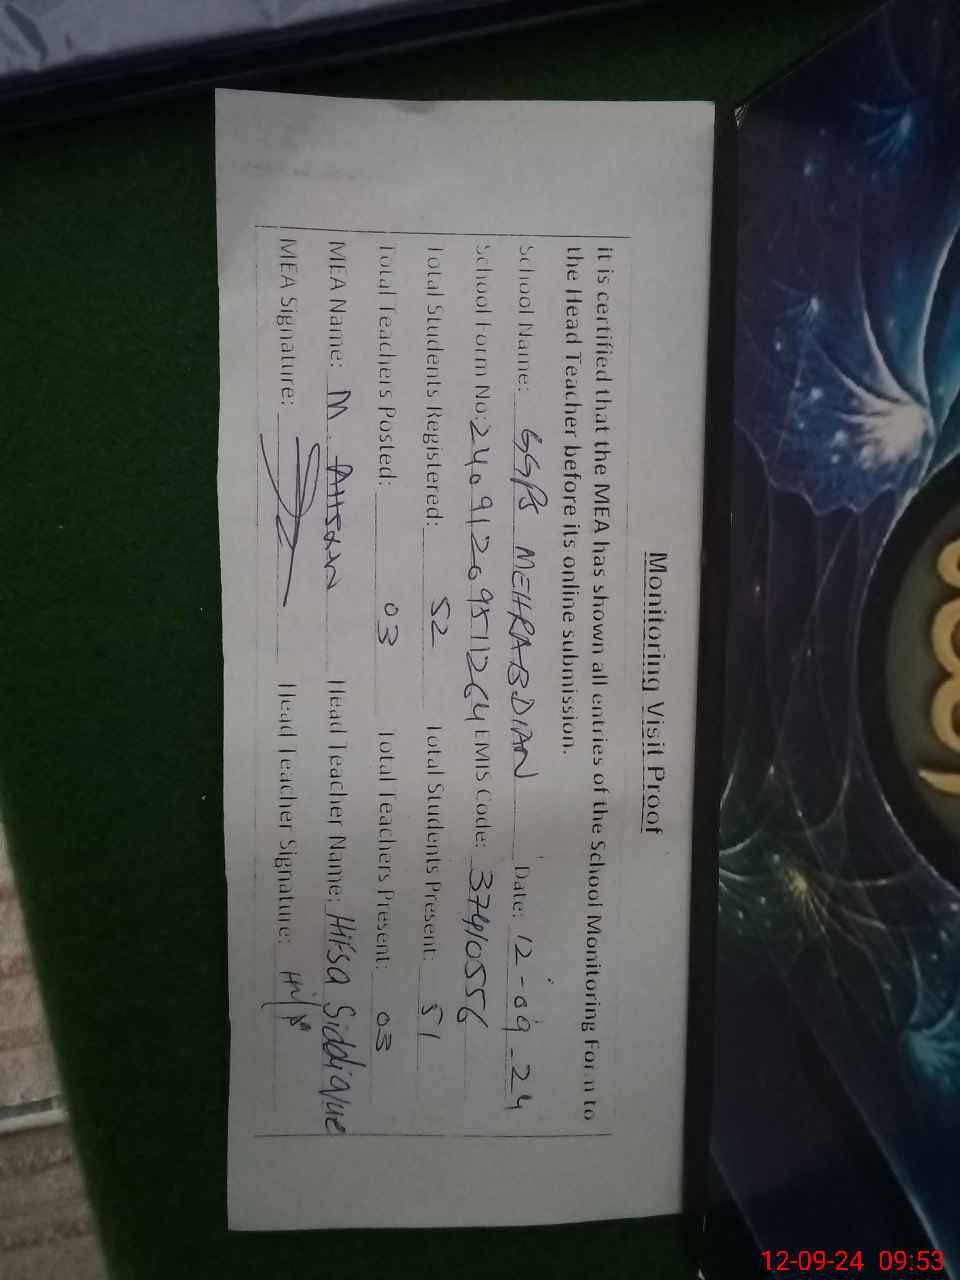 Monitoring Visit Proof
it is certified that the MEA has shown all entries of the School Monitoring Form to
the Head Teacher before its online submission.
School Name: GGPS MEHRABDIAN Date: 12-09-24
School Form No: 24091209511264 EMIS Code: 37410556
Total Students Registered: 52 Total Students Present: 51
Total Teachers Posted: 03 Total Teachers Present: 03
MEA Name: M. AHSAN Head Teacher Name: Hifsa Siddique
MEA Signature: Head Teacher Signature:
12-09-24 09:53